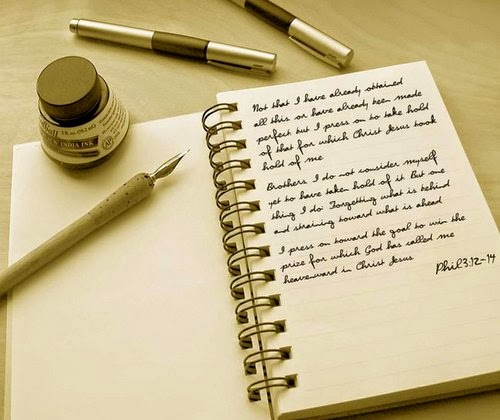 Not that I have already obtained
all this or have already been made
perfect but I press on to take hold
of that for which Christ Jesus took
hold of me
Brothers I do not consider myself
yet to have taken hold of it But one
thing I do: Forgetting what is behind
and straining toward what is ahead
I press on toward the goal to win the
prize for which God has called me
heavenward in Christ Jesus
Phil.3:12-14
INDIA INK